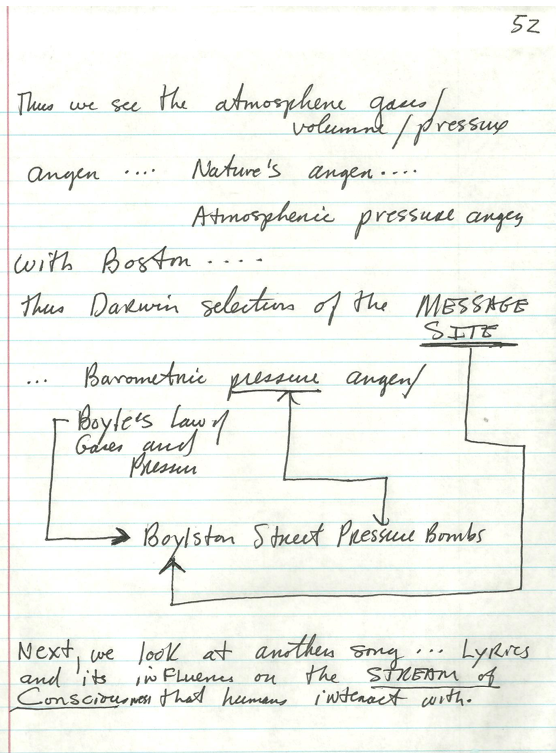 52
Thus we see the atmosphene gases/
volumne/pressure
angen .... Nature's angen....
Atmosphenic pressure angen
with Boston .....
thus Darwin selection of the MESSAGE
SITE
... Barometric pressure angen/
Boyle's Law of
Gases and
Pressure
Boylston Street Pressure Bombs
Next, we look at anothen song ... Lyrics
and its influence on the STREAM of
Consciousness that humans interact with.